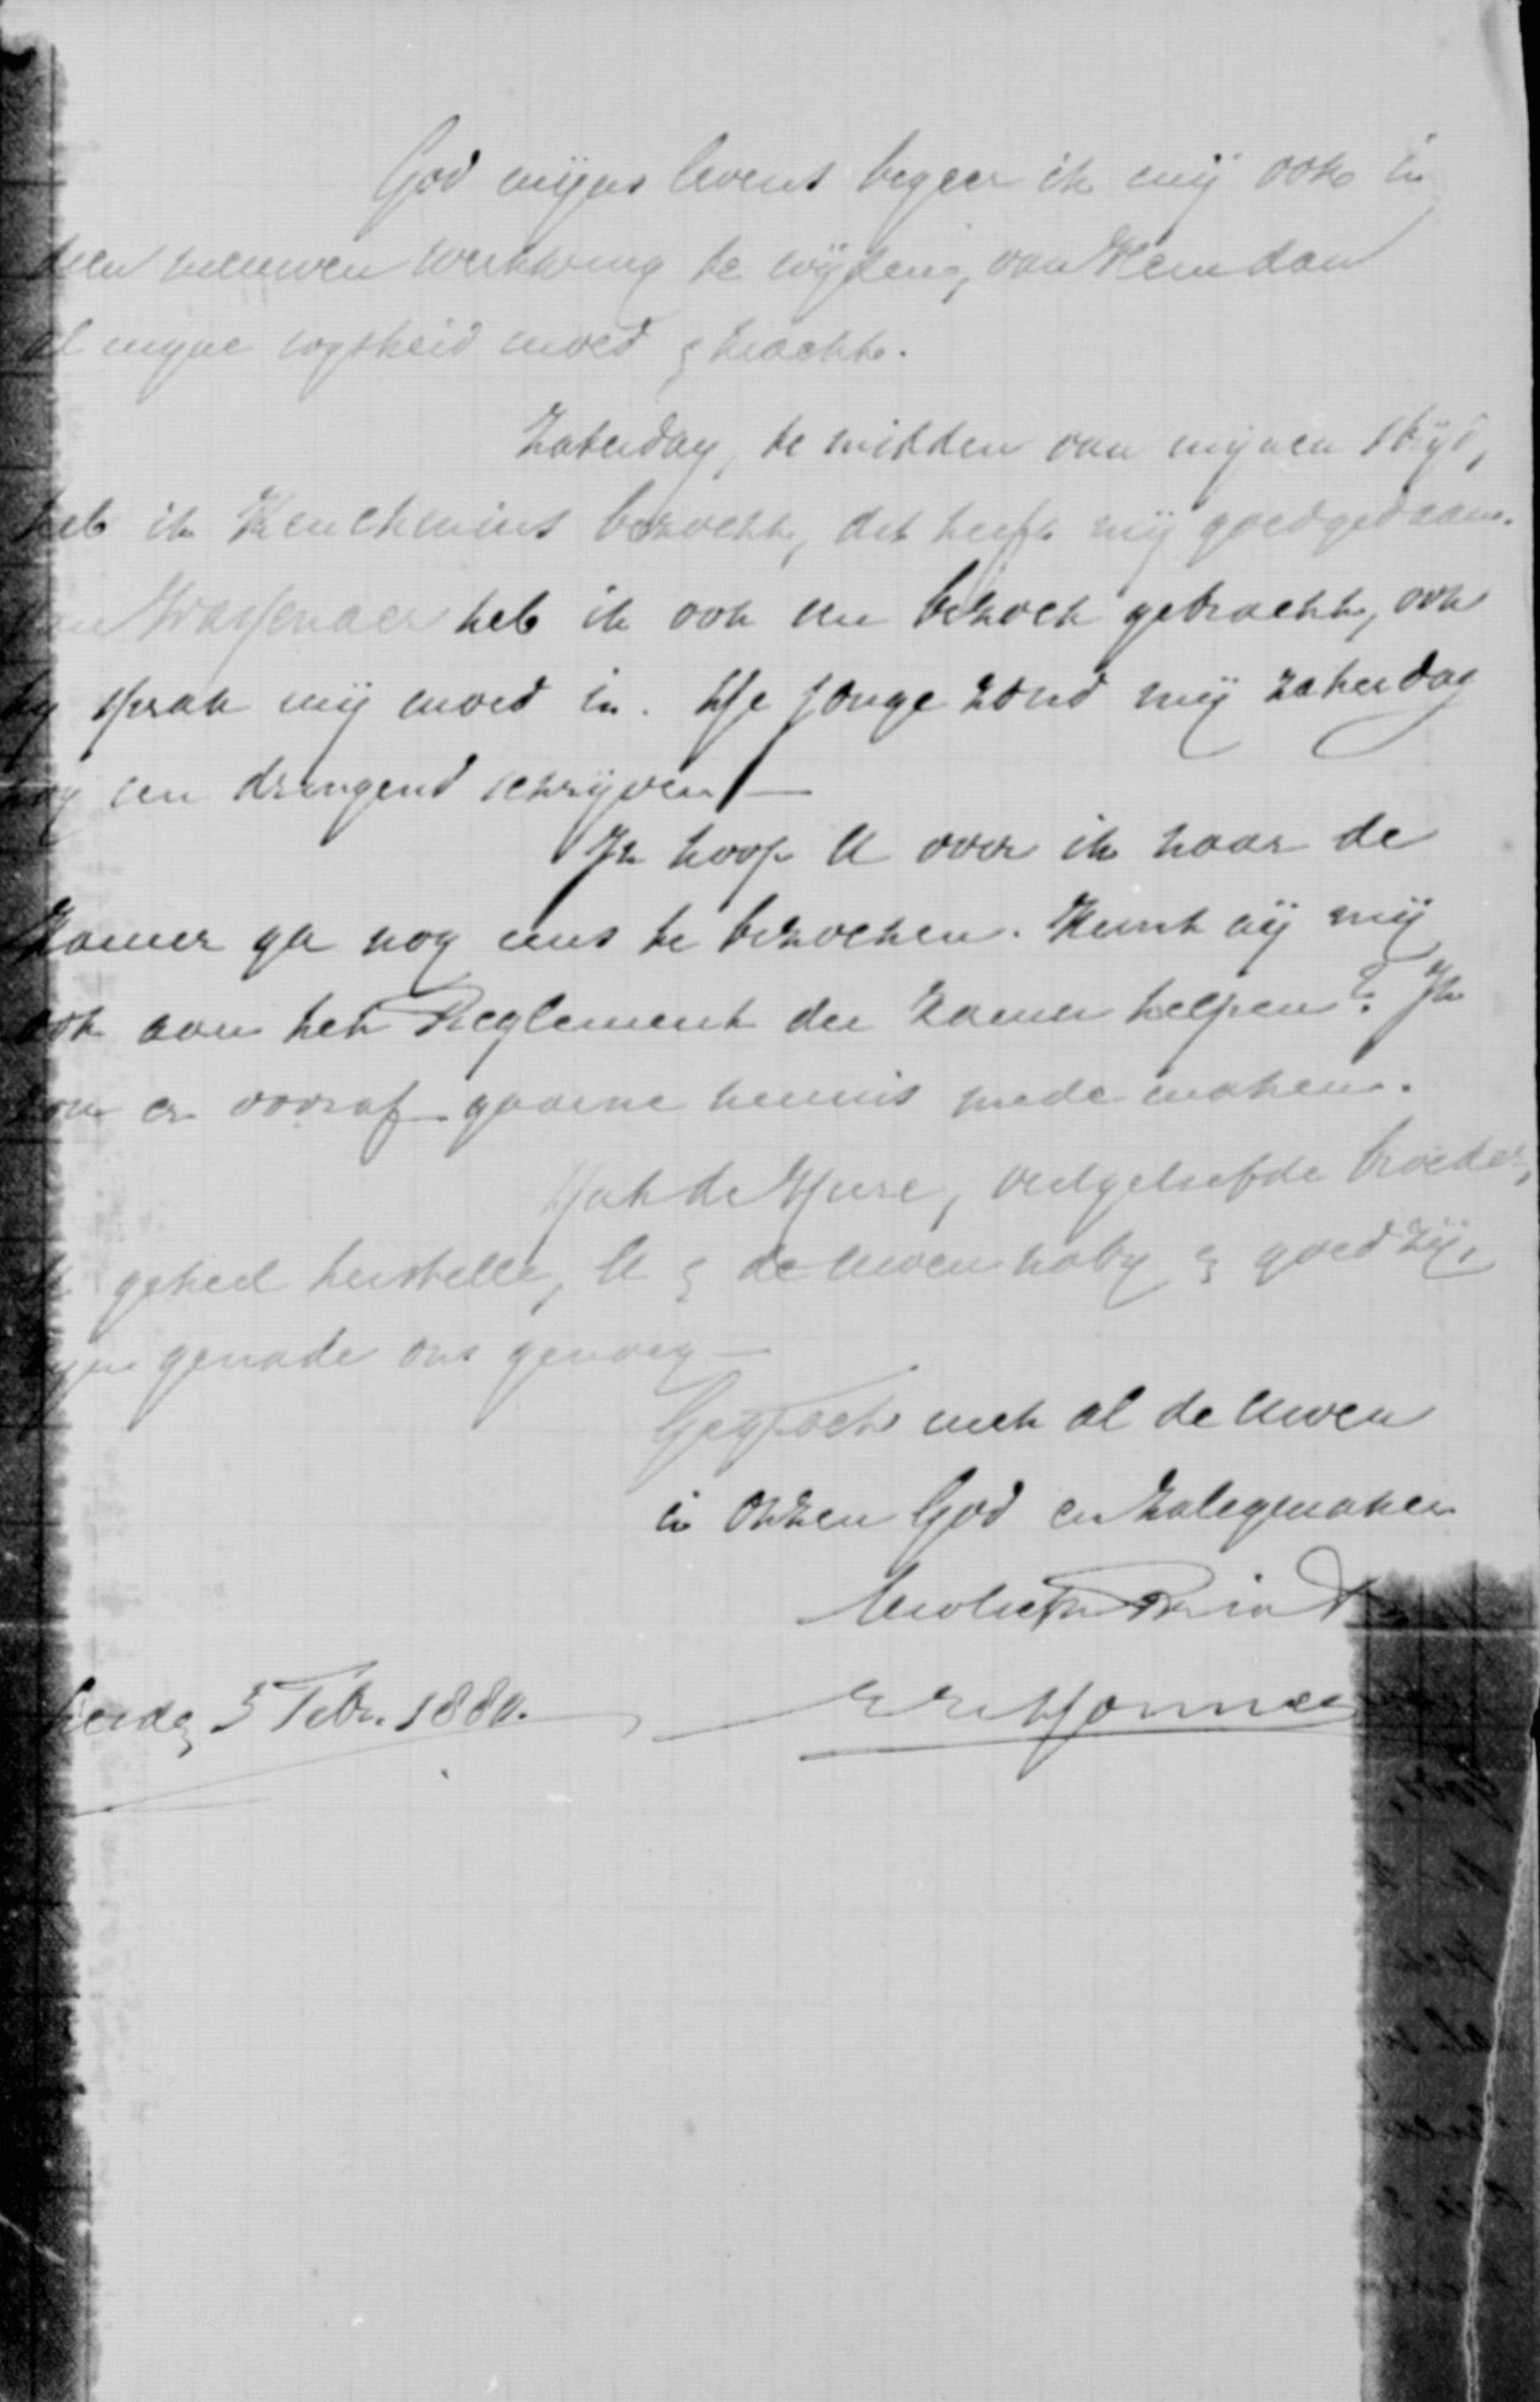 God mijns levens begeer ik mij ook in
dien nieuwen werkkring te wijden, van Hem dan
al mijne wijsheid moed & kracht.
Zaterdag, te midden van mijnen strijd,
heb ik Keuchenius bezocht, dit heeft mij goedgedaan.
Van Wassenaer heb ik ook een bezoek gebracht, ook
hij sprak mij moed in. De Jonge zond mij zaterdag
nog een dringend schrijven –
Ik hoop U voor ik naar de
Kamer ga nog eens te bezoeken. Kunt gij mij
ook aan het Reglement der Kamer helpen? Ik
kon er vooraf gaarne kennis mede maken.
de Heere, veelgeliefde broeder,
U geheel herstelle, U & de uwen nabij & goed zij,
Zijne genade ons genoeg –
Gegroet met al de uwen
in onzen God en Zaligmaker
Vriend
5 Febr. 1880.